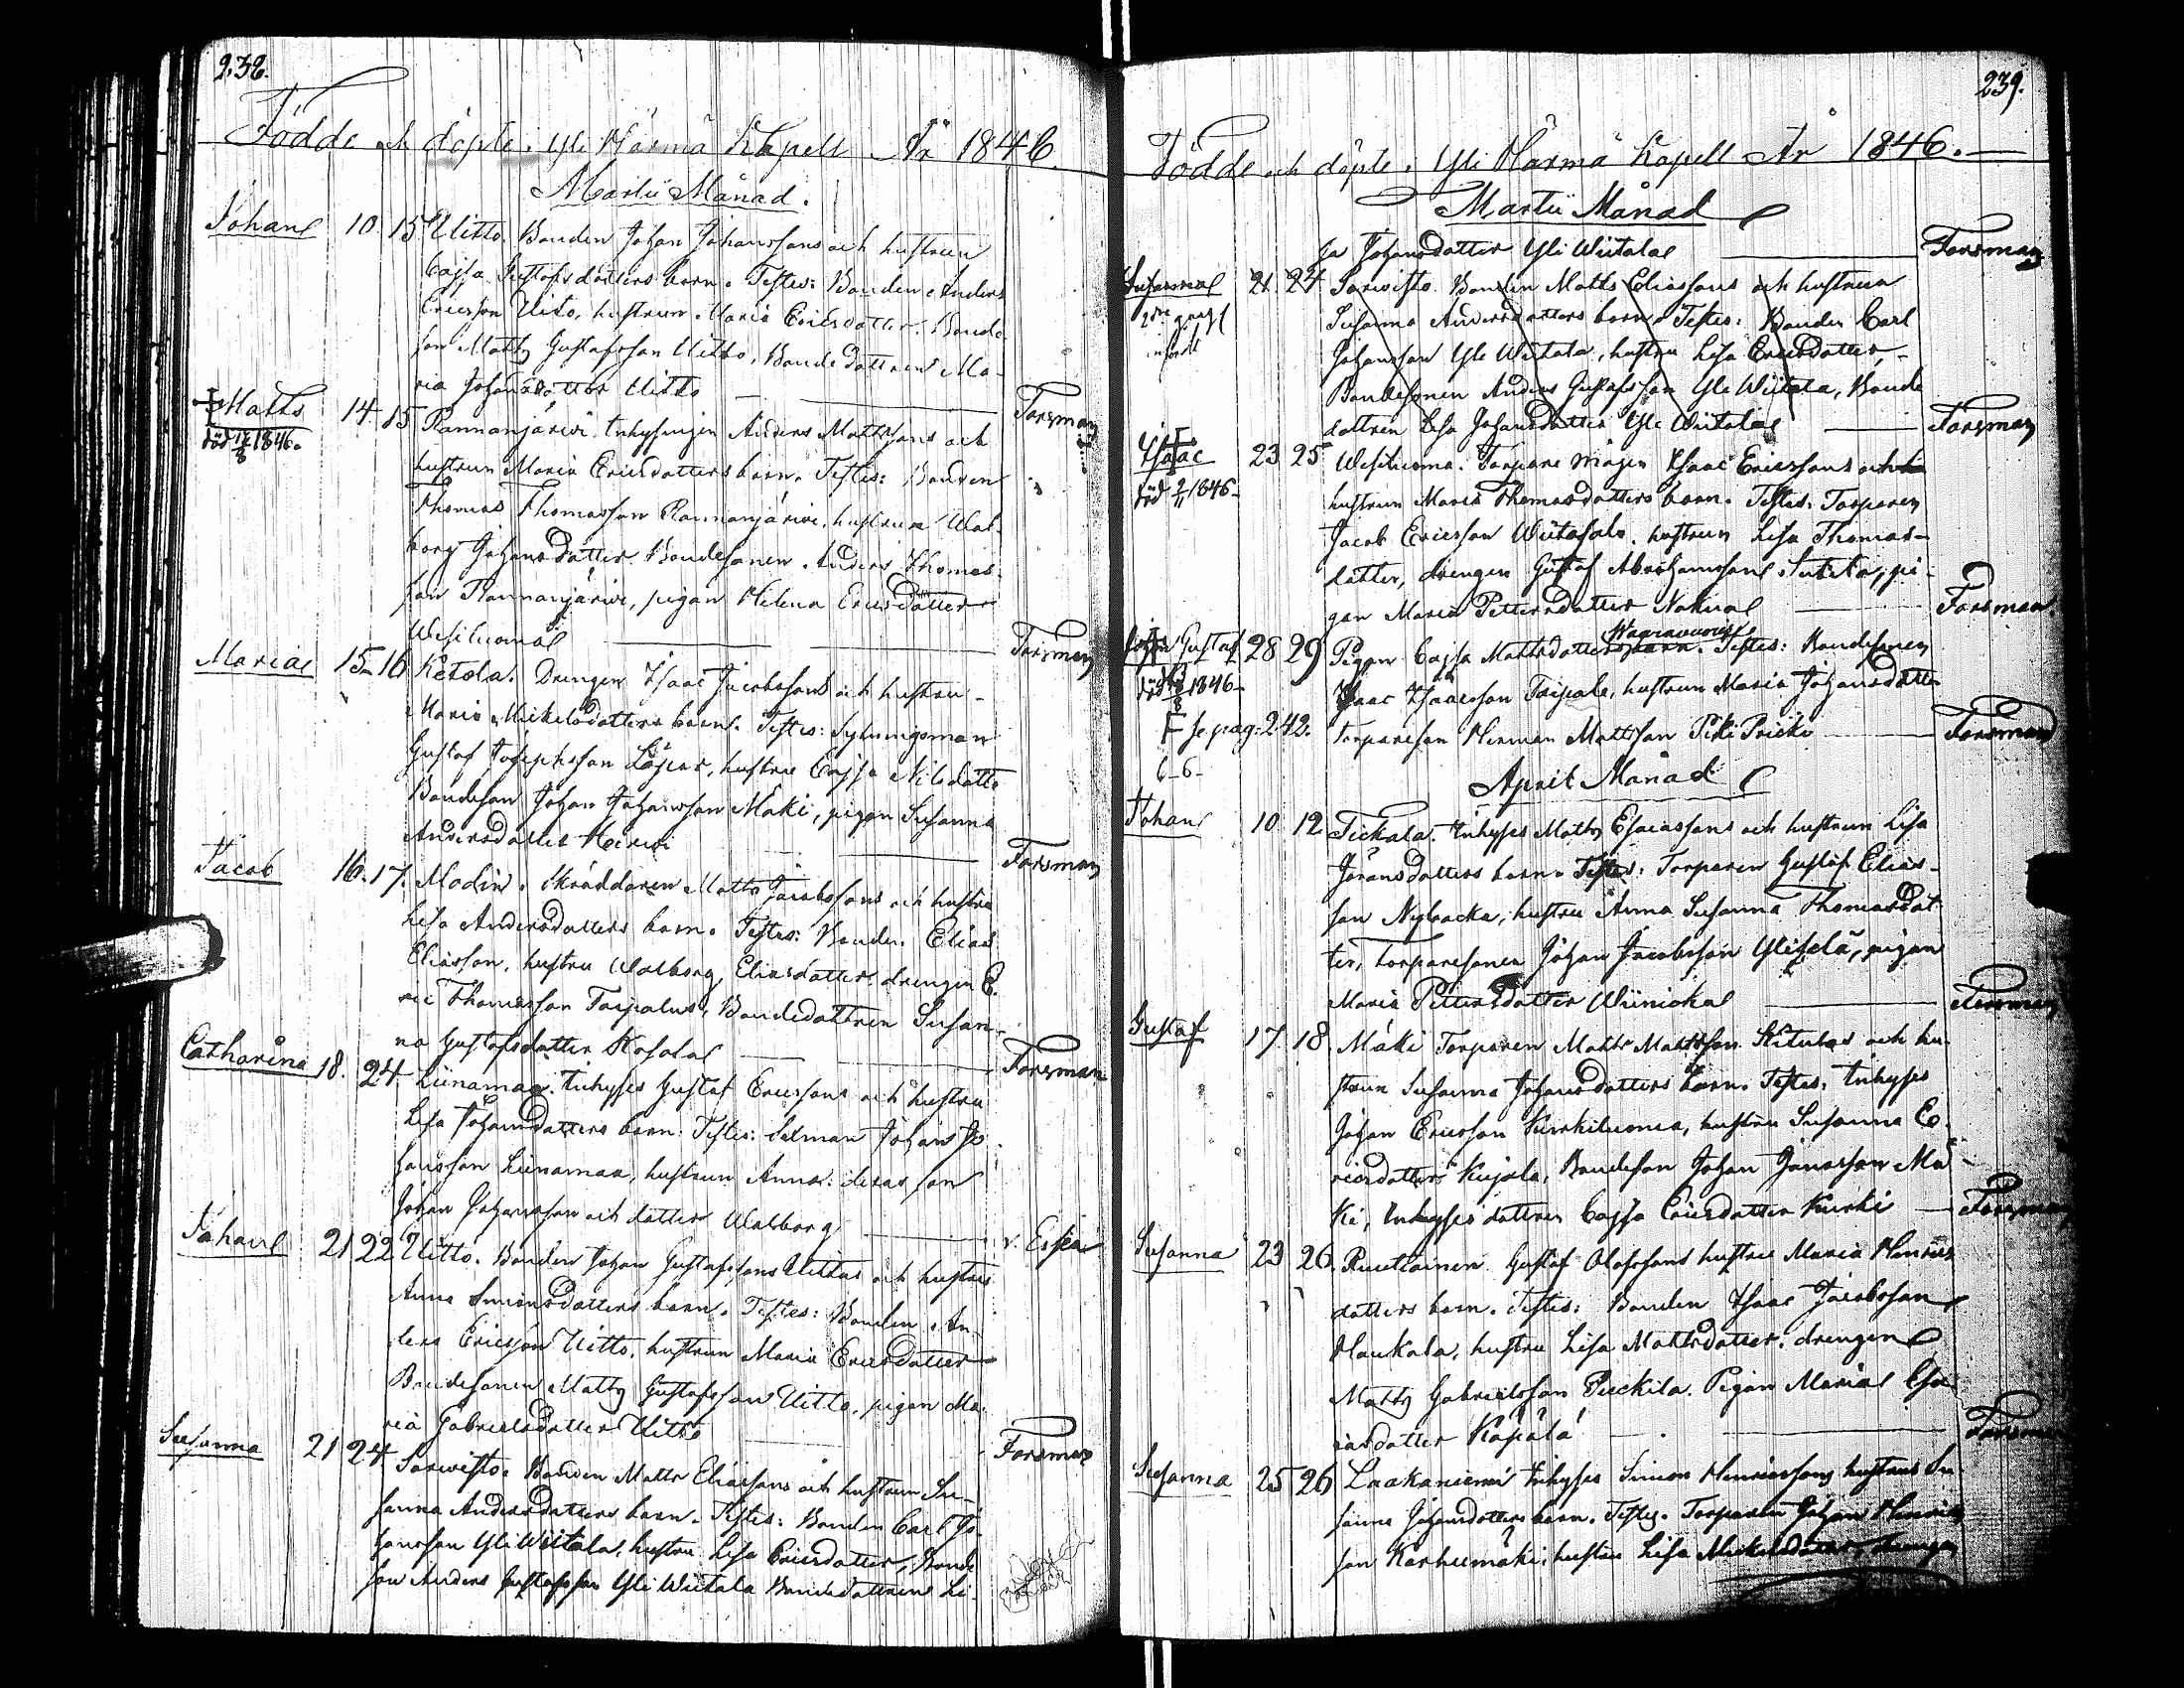 238.
Födde och döpte i Yli Härmä Kapell År 1846.
Martii Månad.
Johan 10. 15 Uitto. Bonden Johan Johanssons och hustrun
Cajsa Gustafsdotters barn. Testes: Bonden Anders
Ericsson Uito, hustrun Maria Ericsdotter. Bonde-
son Matts Gustafsson Uitto, Bondedottren Ma-
ria Johansdotter Uitto Forsman
Matts 14. 15 Rannanjärwi. Inhysingen Anders Mattssons och
död 17/8 1846.
hustrun Maria Ericsdotters barn. Testes: Bonden
Thomas Thomasson Rannanjärwi, hustrun Wal-
borg Johansdotter. Bondesonen Anders Thomas-
son Rannanjärwi, pigan Helena Ericsdotter
Wesiluoma Forsman
Maria 15. 16 Ketola. Drengen Isaac Jacobssons och hustru
Maria Mickelsdotters barn. Testes: Sytningsman
Gustaf Josephsson Löpar, hustru Cajsa Nilsdotte
Bondeson Johan Johansson Mäki, pigan Susanna
Andersdotter Forsman
Jacob 16. 17. Modin. Skräddaren Matts Jacobssons och hustru
Lisa Andersdotters barn. Testes: Bonden Elias
Eliasson, hustru Walborg Eliasdotter, drengen E-
ric Thomasson Taipalus, Bondedottren Susan-
na Gustafsdotter Kosola Forsman
Catharina 18. 24. Liinamaa. Inhyses Gustaf Ericssons och hustru
Lisa Johansdotters barn. Testes: Johan Jo-
hansson Liinamaa, hustrun Anna. deras son
Johan Johansson och dotter Walborg
Johan 21 22 Uitto. Bonden Johan Gustafssons Uittos och hustrus
Anna Simonsdotters barn. Testes: Bonden An-
ders Ericsson Uitto, hustrun Maria Ericsdotter
Bondesonen Matts Gustafsson Uitto, pigan Ma-
ria Gabrielsdotter Uitto Forsman
Susanna 21 24 Sorwisto. Bonden Matts Eliassons och hustrun Su-
sanna Andersdotters barn. Testes: Bonden Carl Jo-
hansson Yli Wiitala, hustru Lisa Ericsdotter, Bonde
son Anders Gustafsson Yli Wiitala Bondedottren Li-
239.
Födde och döpte i Yli Härmä Kapell År 1846.
Martii Månad
sa Johansdotter Yli Wiitala Forsman
Susanna 21. 24. Sorwisto. Bonden Matts Eliassons och hustrun
Susanna Andersdotters barn. Testes: Bonden Carl
Johansson Yle Wiitala, hustru Lisa Ericsdotter,
Bondesonen Anders Gustafsson Yle Wiitala, Bonde
dottren Lisa Johansdotter Yle Wiitala Forsman
Isaac 23 25 Wesiluoma. Torpare mågen Isaac Ericssons och
död 2/11 1846.
hustrun Maria Thomasdotters barn. Testes: Torparen
Jacob Ericsson Wiitasalo, hustrun Lisa Thomas-
dotter, drengen Gustaf Abrahamsson, pi-
gan Maria Pettersdotter Forsman
Johan Gustaf 28 29 Pigan Cajsa Mattsdotters barn. Testes: Bondesonen
död 1846.
Isaac Isaacsson Taipale, hustrun Maria Johansdotte
Se pag: 242. Torpareson Herman Mattsson Forsman
6-6-
April Månad
Johan 10 12 Tickala. Inhyses Matts Esaiassons och hustrun Lisa
Göransdotters barn. Testes: Torparen Gustaf Elias-
son Nybacka, hustru Anna Susanna Thomasdot-
ter, Torparesonen Johan Jacobsson, pigan
Maria Pettersdotter Wiinicka Forsman
Gustaf 17. 18 Mäki Torparen Matts Mattsson och hu-
strun Susanna Johansdotters barn. Testes: Inhyses
Johan Ericsson Kurkiluoma, hustru Susanna E-
ricsdotter Kujala, Bondeson Johan Jönasson Mä-
ki, Inhyses dottren Cajsa Ericsdotter Kurki Forsman
Susanna 23 26 Ruutiainen. Gustaf Olofssons hustru Maria Henrics
dotters barn. Testes: Bonden Isaac Jacobsson
Haukala, hustru Lisa Mattsdotter, drengen
Matts Gabrielsson Puckila. Pigan Maria Esa-
iasdotter Käpälä Forsman
Susanna 25 26 Laakaniemi Inhyses Simon Henricssons hustrus Su-
sanna Johansdotters barn. Testes. Torparen Johan Henrics
son Karhumäki, hustru Lisa Mickelsdotter, drengen